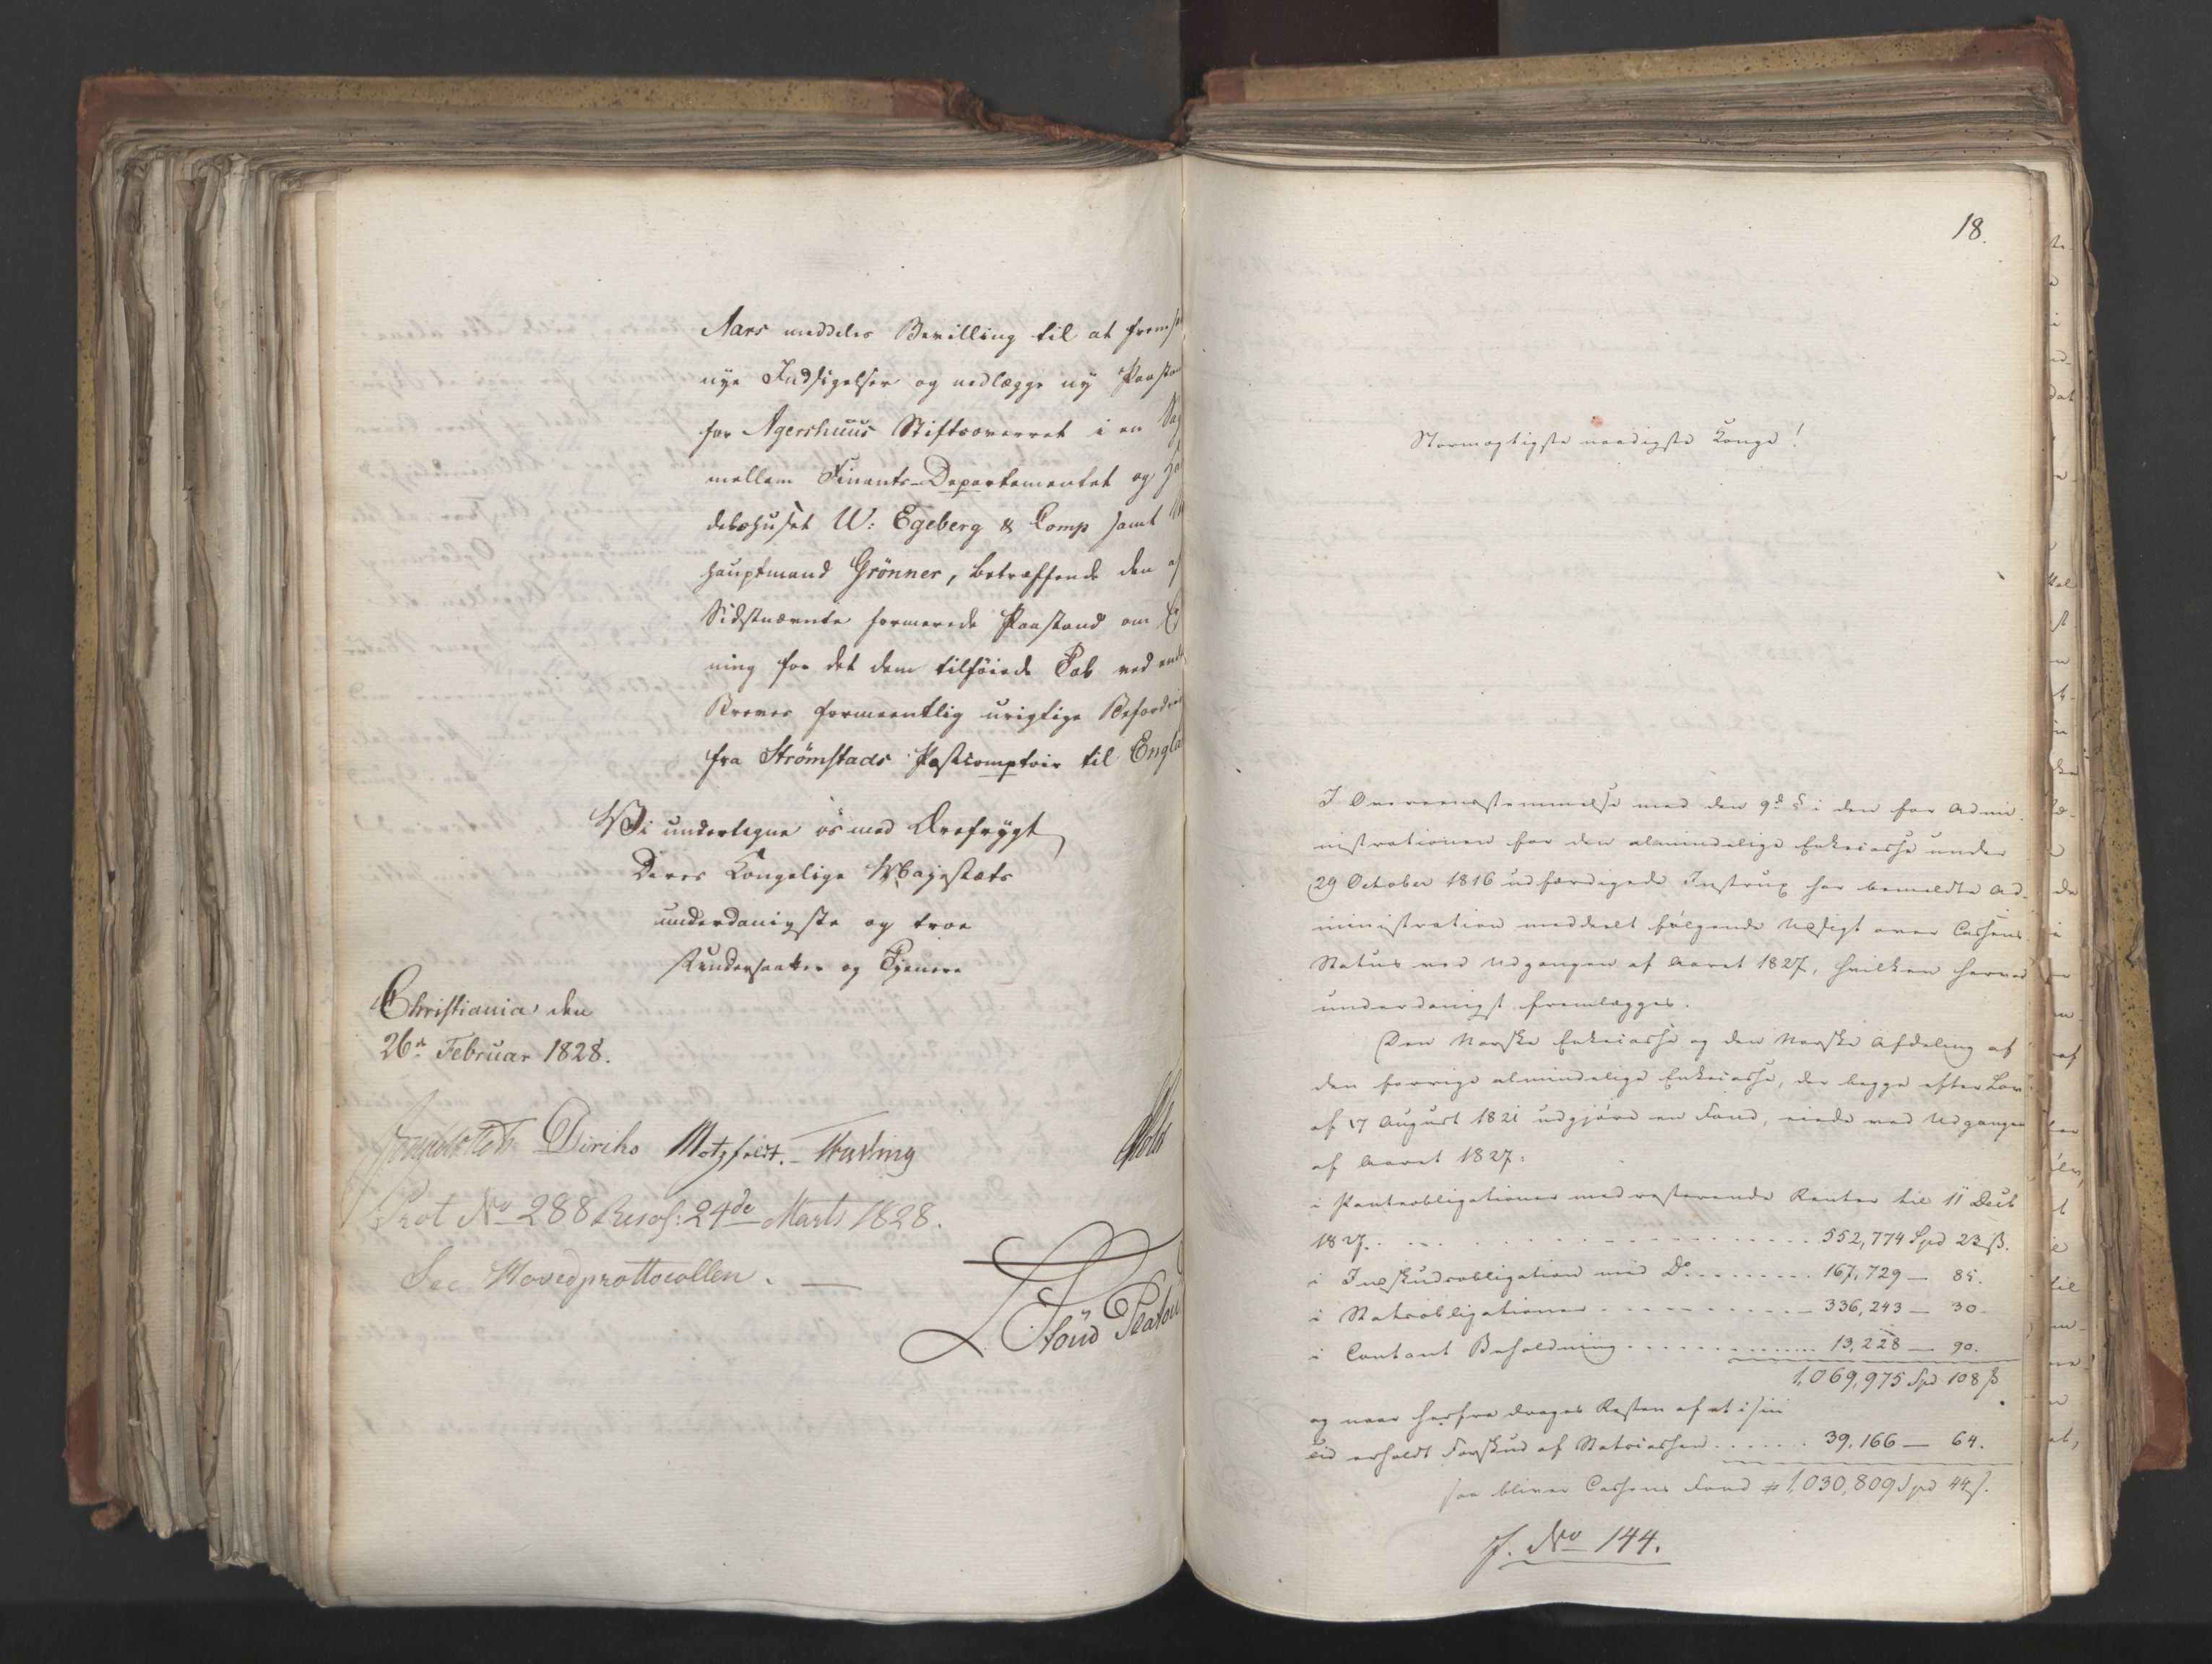 Aars meddeles Bevilling til at frem
nye Indsigelser og nedlægge ny Paasta
for Agershuus Stiftsoverret i en Sag
mellem Finants-Departementet og Ha
delshuset W: Egeberg & Comp samt
Hauptmand Grönner, betræffende den af
Sidstnævnte formerede Paastand om Er
ning for det dem tilföiede Tab ved
Breves formeentlig urigtige Befordri
fra Strömstads Postcomptoir til Engla
Vi undertegne os med Ærefrygt
Deres Kongelige Majestæts
underdanigste og troe
Undersaatter og Tjenere
Christiania den
26de Februar 1828.
Diriks Motzfeldt. Holst
Prot No 288 Resol: 24de Marts 1828.
See Hovedprottocollen.
Platou
18.
Stormægtigste naadigste Konge!
I Overeensstemmelse med den 9de § i den for Admi-
nistrationen for den almindelige Enkecasse under
29 October 1816 udfærdigede Instrux har bemeldte Ad-
ministration meddeelt følgende Udsigt over Cassens
Status ved Udgangen af Aaret 1827, hvilken herved
underdanigst fremlægges.
Den Norske Enkecasse og den Norske Afdeling af
den forrige almindelige Enkecasse, der begge efter Lov
af 17 August 1821 udgjøre en Fond, eiede ved Udgangen
af Aaret 1827:
i Panteobligationer med resterende Renter til 11 Decb
1827. 552,774 Spd 23 ß.
i Indskudsobligation med Do 167,729 — 85.
i Statsobligationer 336,243 — 30.
i Contant Beholdning 13,228 — 90.
1,069,975 Spd 108 ß
og naar herfra drages Resten af et i sin
Tid erholdt Forskud af Statscassen 39,166 — 64.
saa bliver Cassens Fond 1,030,809 Spd 44 ß.
J. No 144.